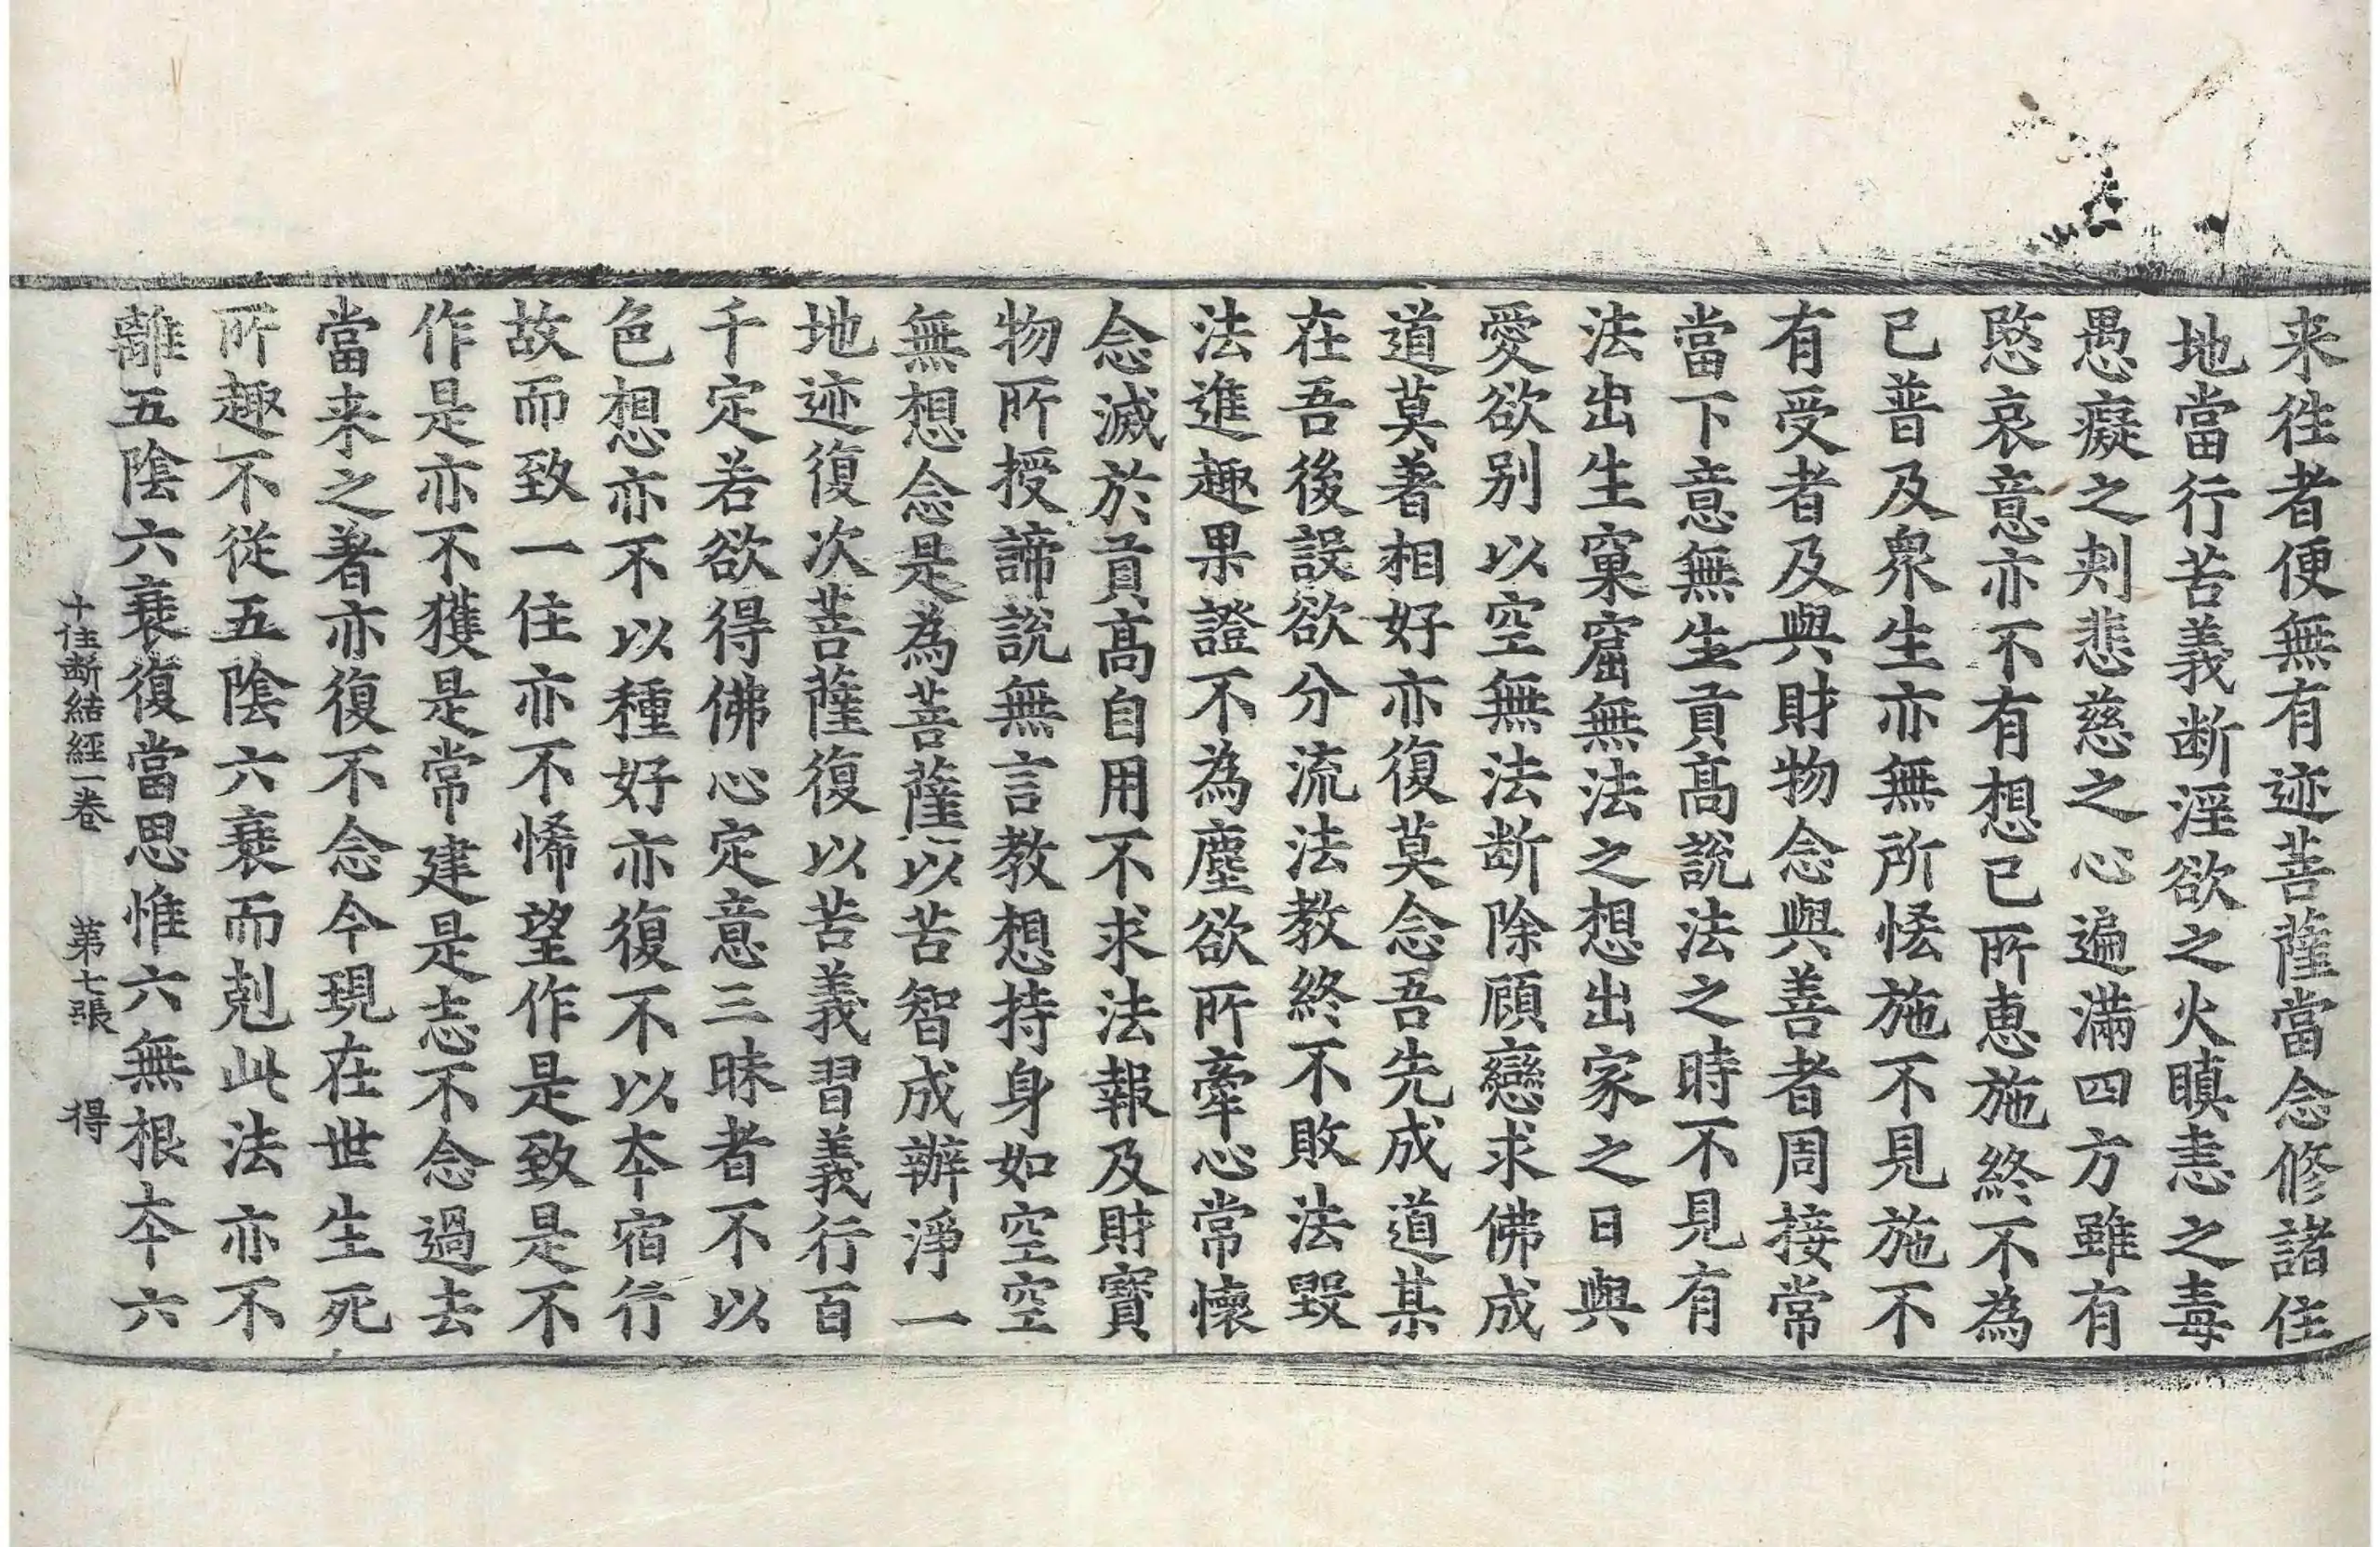 来往者便無有迹菩薩當念修諸住
地當行苦義斷淫欲之火瞋恚之毒
愚癡之刾悲慈之心遍滿四方雖有
愍哀意亦不有想已所惠施終不為
已普及衆生亦無所悋施不見施不
有受者及與財物念與善者周接常
當下意無生貢髙說法之時不見有
法出生窠窟無法之想出家之日與
愛欲别以空無法斷除顧戀求佛成
道莫著相好亦復莫念吾先成道某
在吾後設欲分流法教終不敗法毀
法進趣果證不為塵欲所牽心常懷
念滅於貢髙自用不求法報及財寶
物所授諦說無言教想持身如空空
無想念是為菩薩以苦智成辦淨一
地迹復次菩薩復以苦義習義行百
千定若欲得佛心定意三昧者不以
色想亦不以種好亦復不以本宿行
故而致一住亦不悕望作是致是不
作是亦不獲是常建是志不念過去
當来之著亦復不念今現在世生死
所趣不從五陰六衰而剋此法亦不
離五陰六衰復當思惟六無根本六
十住斷結經一卷 第七張 得